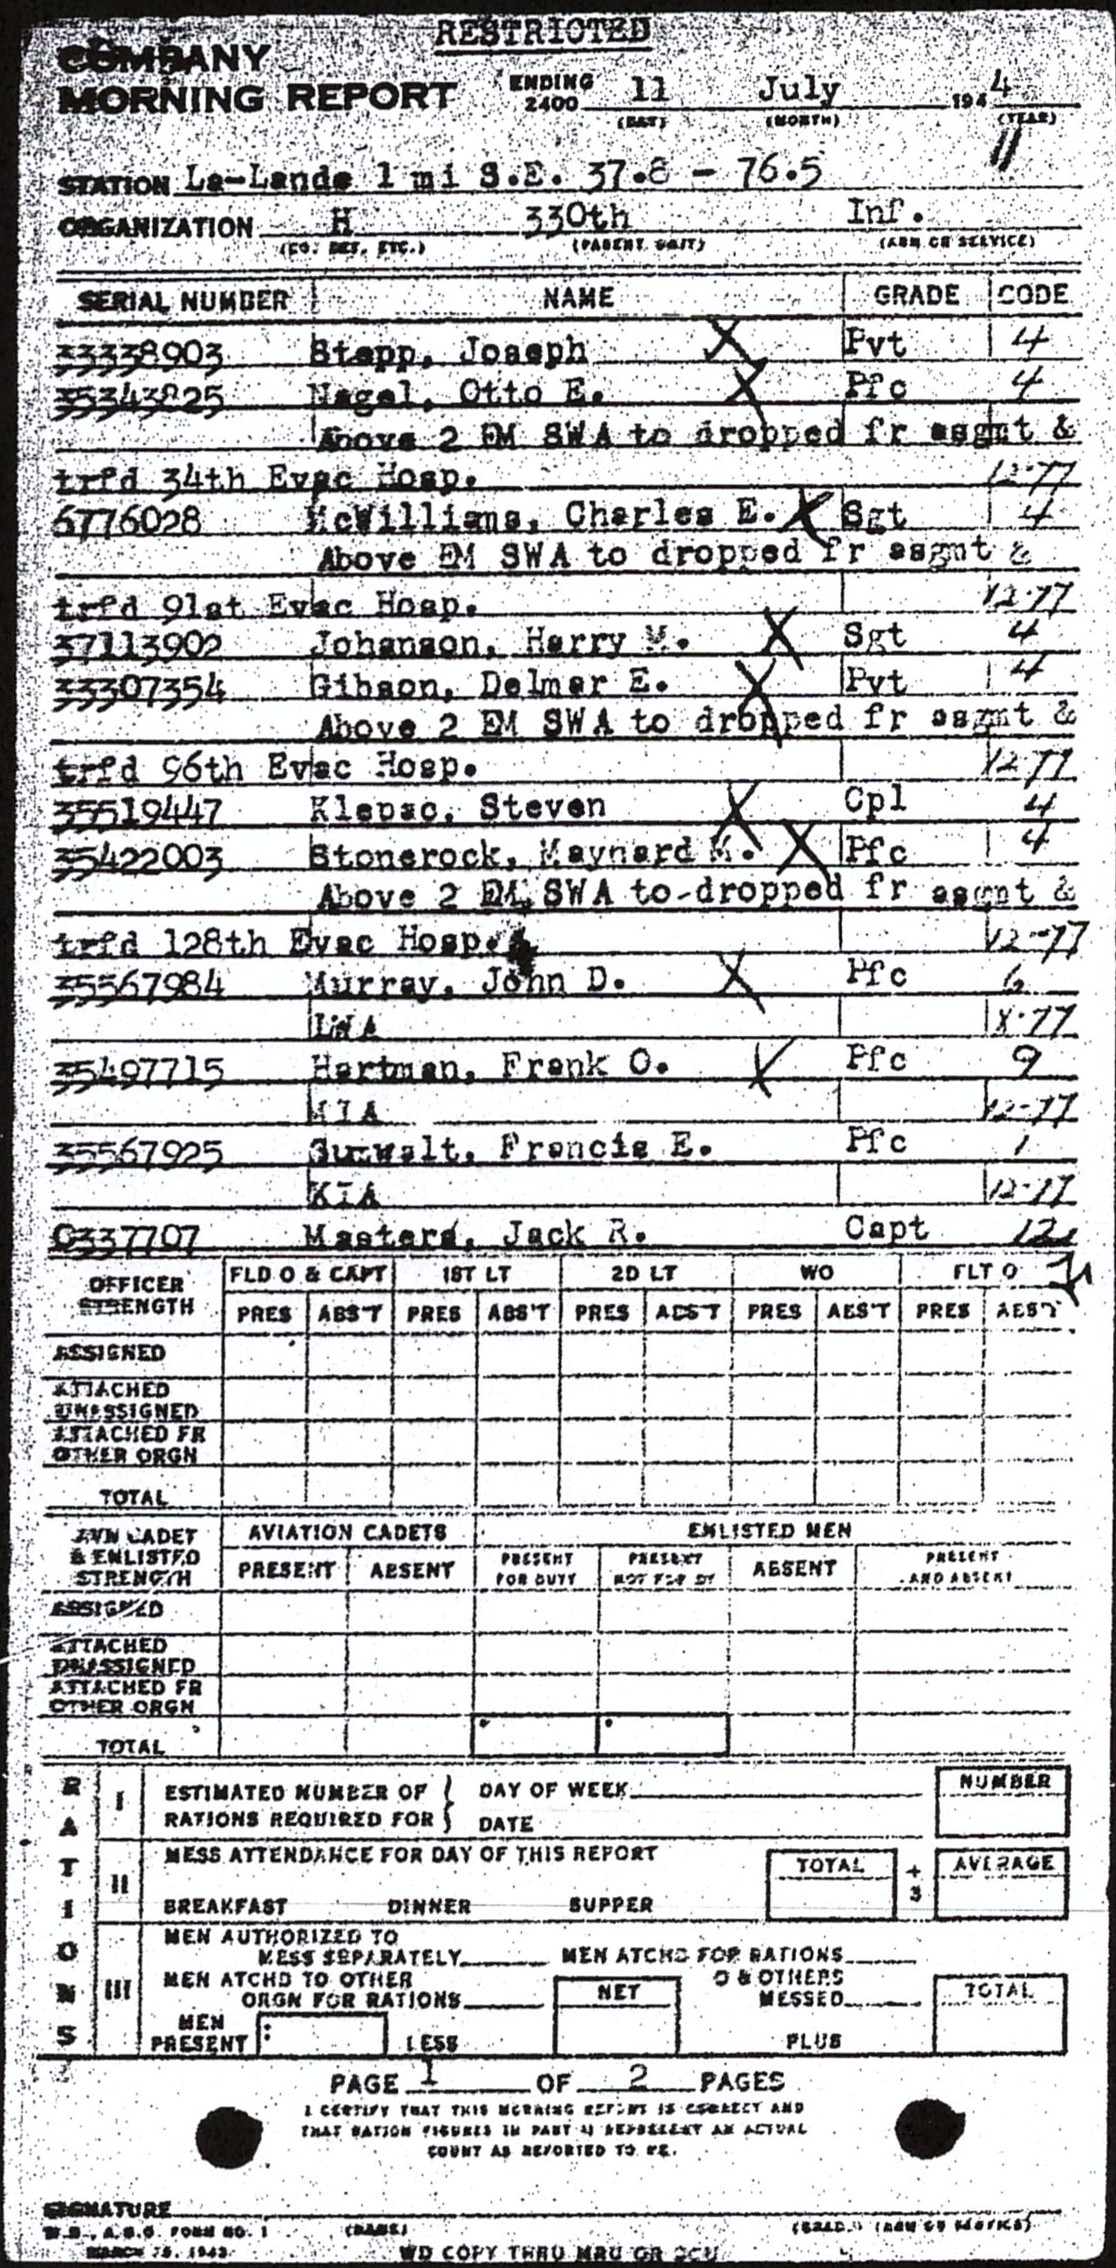 RESTRICTED
COMPANY
MORNING REPORT ENDING 2400 11 July 1944
(DAY) (MONTH) (YEAR)
11
STATION La-Lande 1 mi S.E. 37.8 - 76.5
ORGANIZATION H 330th Inf.
(CO. DET, ETC.) (PARENT UNIT) (ARM OR SERVICE)
SERIAL NUMBER NAME GRADE CODE
33338903 Stepp, Joseph X Pvt 4
35343825 Nagel, Otto E. X Pfc 4
Above 2 EM SWA to dropped fr asgmt &
trfd 34th Evac Hosp. 12-77
6776028 McWilliams, Charles E. X Sgt 4
Above EM SWA to dropped fr asgmt &
trfd 91st Evac Hosp. 12-77
37113902 Johanson, Harry M. X Sgt 4
33307354 Gibson, Delmar E. X Pvt 4
Above 2 EM SWA to dropped fr asgmt &
trfd 96th Evac Hosp. 12-77
35519447 Klepac, Steven X Cpl 4
35422003 Stonerock, Maynard M. X Pfc 4
Above 2 EM SWA to dropped fr asgmt &
trfd 128th Evac Hosp. 12-77
35567984 Murray, John D. X Pfc 6
LWA X-77
35497715 Hartman, Frank O. Pfc 9
MIA 12-77
35567925 Sumwalt, Francis E. Pfc 1
KIA 12-77
O337707 Masters, Jack R. Capt 12
OFFICER STRENGTH FLD O & CAPT 1ST LT 2D LT WO FLT O
PRES ABS'T PRES ABS'T PRES ABS'T PRES ABS'T PRES ABS'T
ASSIGNED
ATTACHED UNASSIGNED
ATTACHED FR OTHER ORGN
TOTAL
AVN CADET & ENLISTED STRENGTH AVIATION CADETS ENLISTED MEN
PRESENT ABSENT PRESENT FOR DUTY PRESENT NOT FOR DY ABSENT PRESENT AND ABSENT
ASSIGNED
ATTACHED UNASSIGNED
ATTACHED FR OTHER ORGN
TOTAL
RATIONS
I ESTIMATED NUMBER OF DAY OF WEEK NUMBER
RATIONS REQUIRED FOR DATE
II MESS ATTENDANCE FOR DAY OF THIS REPORT TOTAL ÷ 3 AVERAGE
BREAKFAST DINNER SUPPER
III MEN AUTHORIZED TO
MESS SEPARATELY MEN ATCHD FOR RATIONS
MEN ATCHD TO OTHER ORGN FOR RATIONS NET O & OTHERS MESSED TOTAL
MEN PRESENT LESS PLUS
PAGE 1 OF 2 PAGES
I CERTIFY THAT THIS MORNING REPORT IS CORRECT AND
THAT RATION FIGURES IN PART II REPRESENT AN ACTUAL
COUNT AS REPORTED TO ME.
SIGNATURE
W.D., A.G.O. FORM NO. 1 (NAME) (GRADE) (ARM OR SERVICE)
MARCH 15, 1943 WD COPY THRU MRU OR SCU